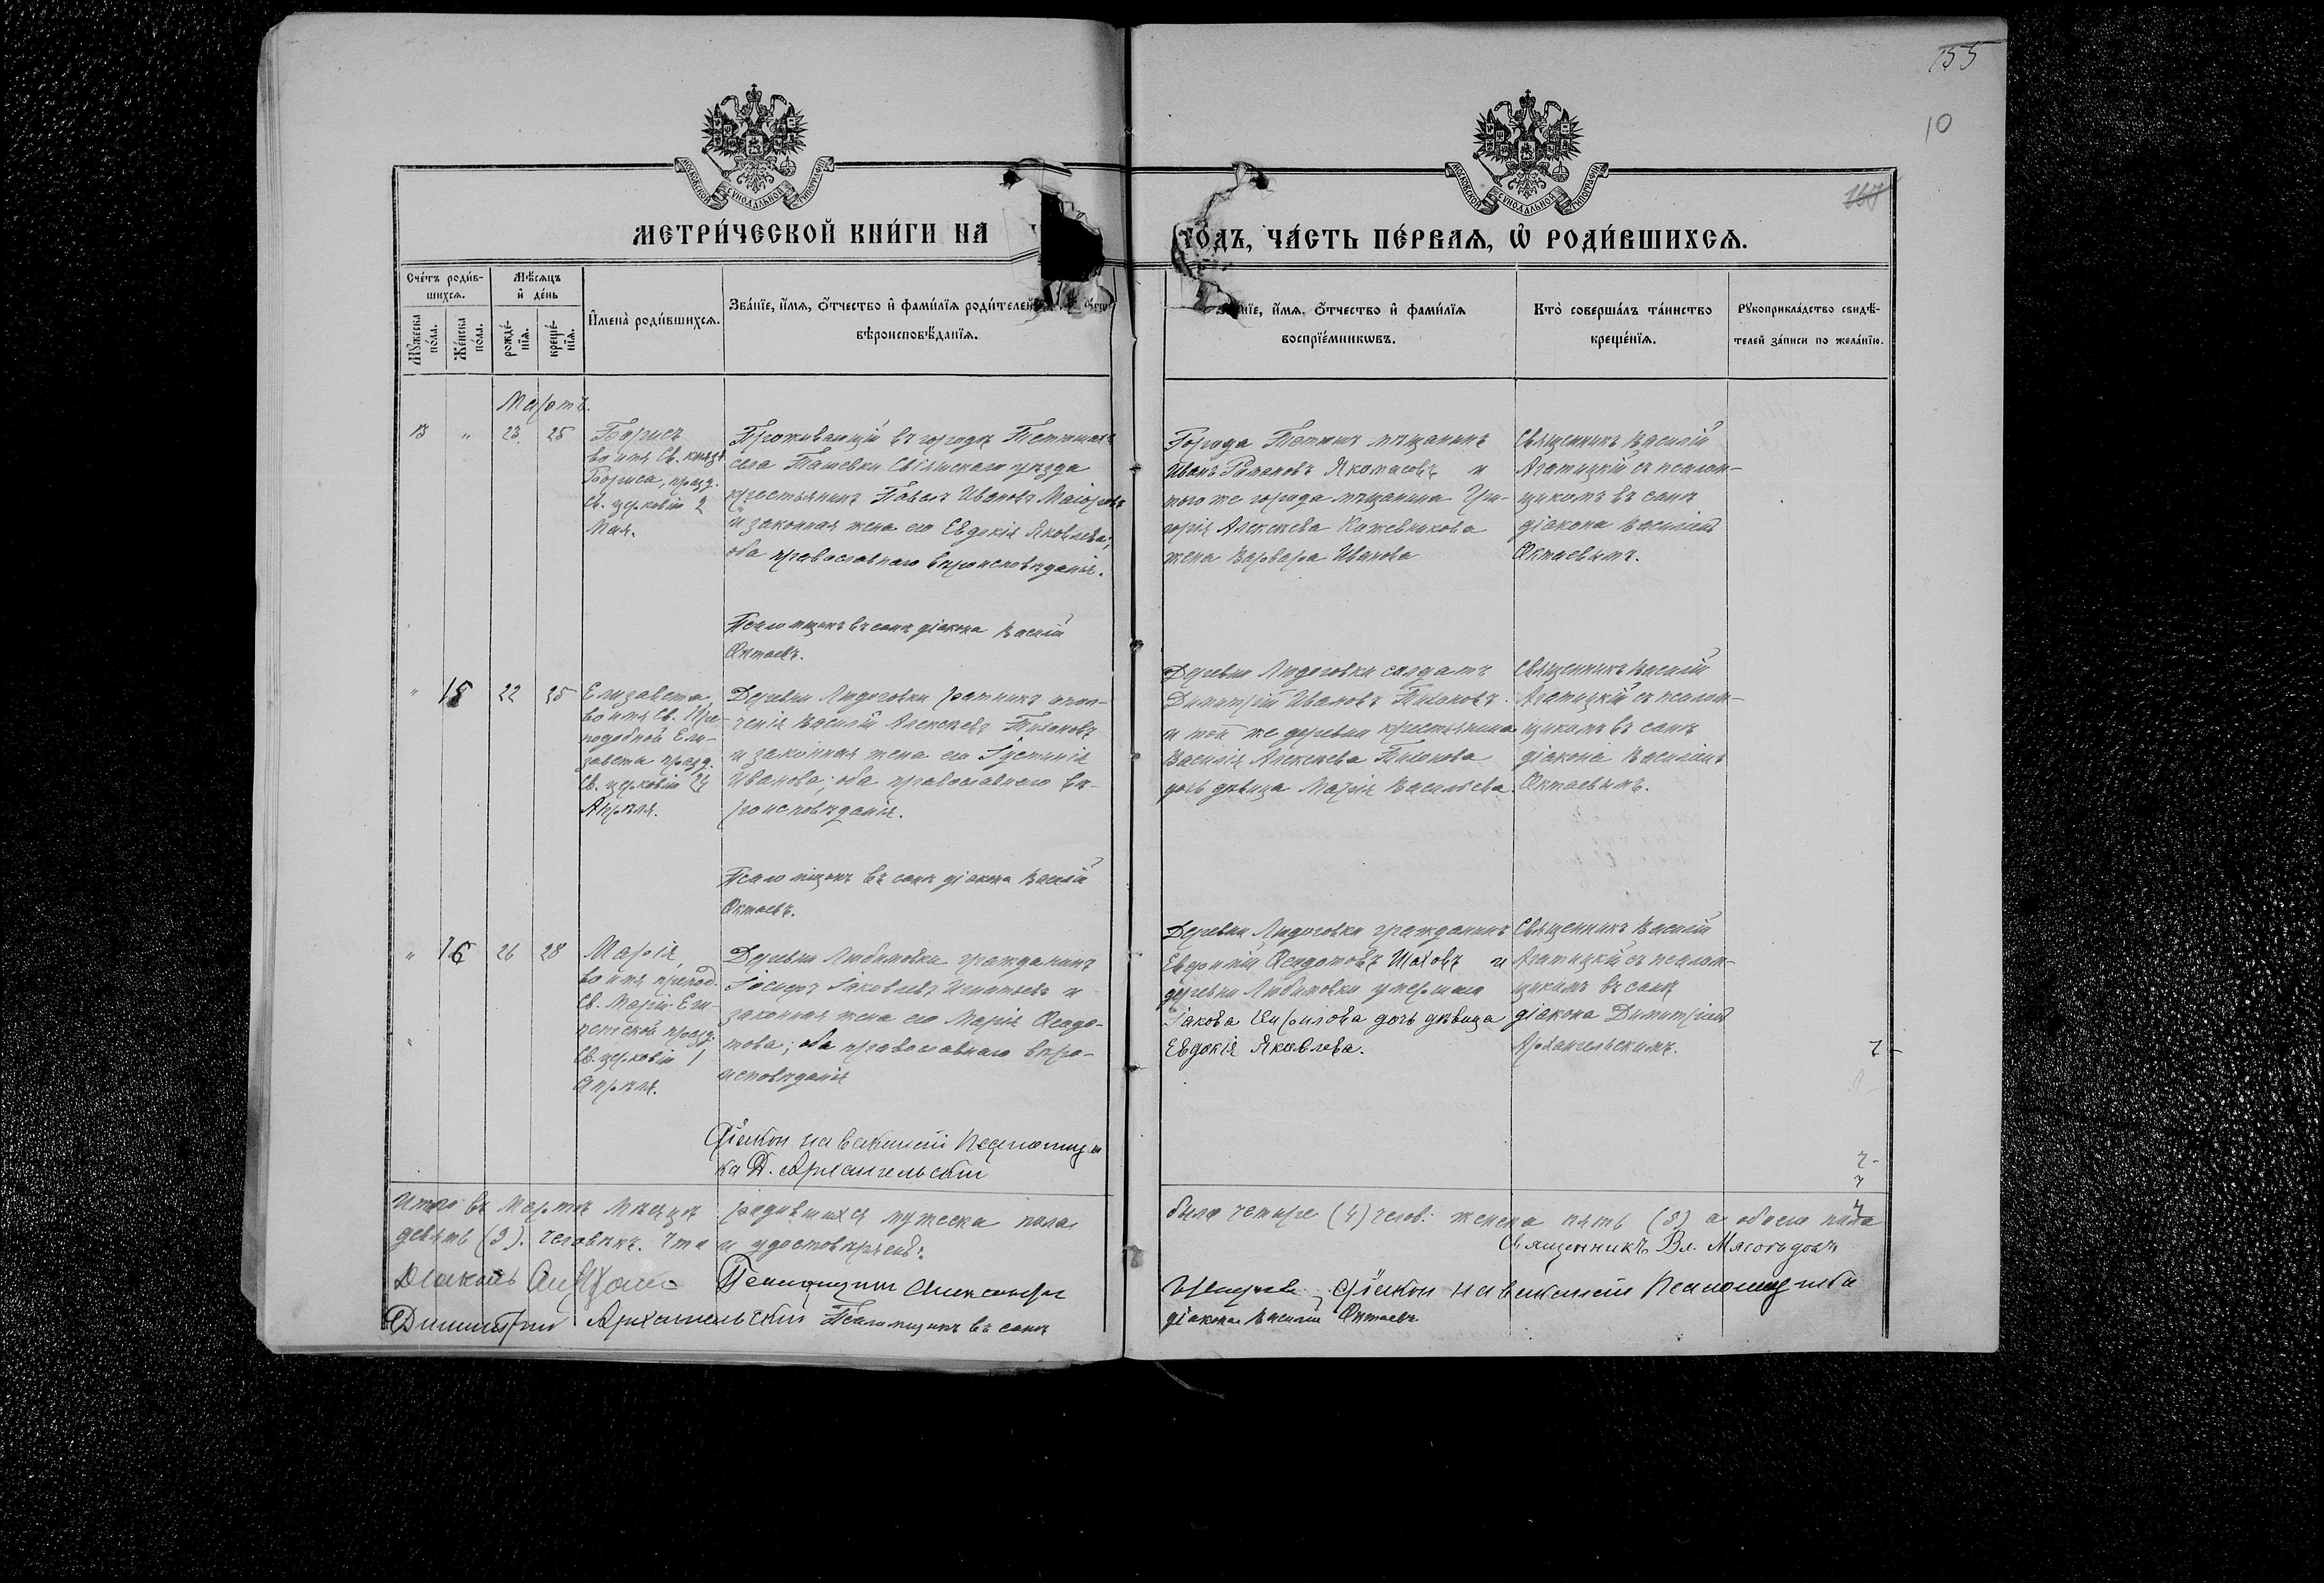 155
10
167
МОСКОВСКОЙ СѴНОДАЛЬНОЙ ТИПОГРАФІИ
МОСКОВСКОЙ СѴНОДАЛЬНОЙ ТИПОГРАФІИ
МЕТРИ́ЧЕСКОЙ КНИ́ГИ НА
ГО́ДЪ, ЧА́СТЬ ПЕ́РВАѦ, Ѡ РОДИ́ВШИХСѦ.
Сче́тъ роди́в-
шихсѧ.
Мѣ́сѧцъ
и҆ де́нь
Мꙋ́жеска по́ла.
Же́нска по́ла.
рожде́-
нїѧ.
креще́-
нїѧ.
И҆мена̀ роди́вшихсѧ.
Зва́нїе, и҆́мѧ, ѻ҆́тчество и҆ фами́лїѧ роди́телей
вѣроисповѣ́данїѧ.
и҆́мѧ, ѻ҆́тчество и҆ фами́лїѧ
воспрїе́мникѡвъ.
Кто̀ соверша́лъ та́инство
креще́нїѧ.
Рꙋкоприкла́дство свидѣ́-
телей за́писи по жела́нїю.
Мартъ.
13 " 23 25
Борисъ
во имя Св. князя
Бориса, празд.
Св. церковію 2
Мая.
Проживающій въ городѣ Тетюшахъ
села Ташевки Свіяжскаго уѣзда
крестьянинъ Павелъ Ивановъ Маіоровъ
и законная жена его Евдокія Яковлева;
оба православнаго вѣроисповѣданія.
Псаломщикъ въ санѣ діакона Василій
Актаевъ.
Города Тетюшъ мѣщанинъ
Иванъ Якимасовъ и
того же города мѣщанина Гри-
горія Алексѣева Кожевникова
жена Варвара Иванова
Священникъ Василій
Агатицкій съ псалом-
щикомъ въ санѣ
діакона Василіемъ
Актаевымъ.
" 15 22 25
Елизавета
во имя Св. Пре-
подобной Ели-
завета празд.
Св. церковію 24
Апрѣля.
Деревни Людоговки ратникъ опол-
ченія Василій Алексѣевъ Тихоновъ
и законная жена его Іустинія
Иванова; оба православнаго вѣ-
роисповѣданія.
Псаломщикъ въ санѣ діакона Василій
Актаевъ.
Деревни Людоговки солдатъ
Димитрій Ивановъ Тихоновъ
и той же деревни крестьянина
Василія Алексѣева Тихонова
дочь дѣвица Марія Васильева
Священникъ Василій
Агатицкій съ псалом-
щикомъ въ санѣ
діакона Василіемъ
Актаевымъ.
" 16 26 28
Марія
во имя препод.
Св. Маріи Еги-
петской празд.
Св. церковію 1
Апрѣля.
Деревни Любимовки гражданинъ
Іосифъ Іаковлевъ Игнатьевъ и
законная жена его Марія Ѳеодо-
това; оба православнаго вѣро-
исповѣданія
Діаконъ на вакансіи псаломщи-
ка Д. Архангельскій
Деревни Людоговки гражданинъ
Евфимій Ѳеодотовъ Шаховъ и
деревни Любимовки умершаго
Іакова Кирилова дочь дѣвица
Евдокія Яковлева.
Священникъ Василій
Агатицкій съ псалом-
щикомъ въ санѣ
діакона Димитріемъ
Архангельскимъ.
Итого въ Мартѣ мѣсяцѣ родившихся мужеска пола
было четыре (4) челов: женска пять (5) а обоего пола
девять (9). человѣкъ. Что и удостовѣряемъ:
Священникъ Вл. Мясоѣдовъ
Діаконъ Псаломщикъ Александръ
Діаконъ на вакансіи Псаломщика
Димитрій Архангельскій Псаломщикъ въ санѣ
діакона Василій Актаевъ